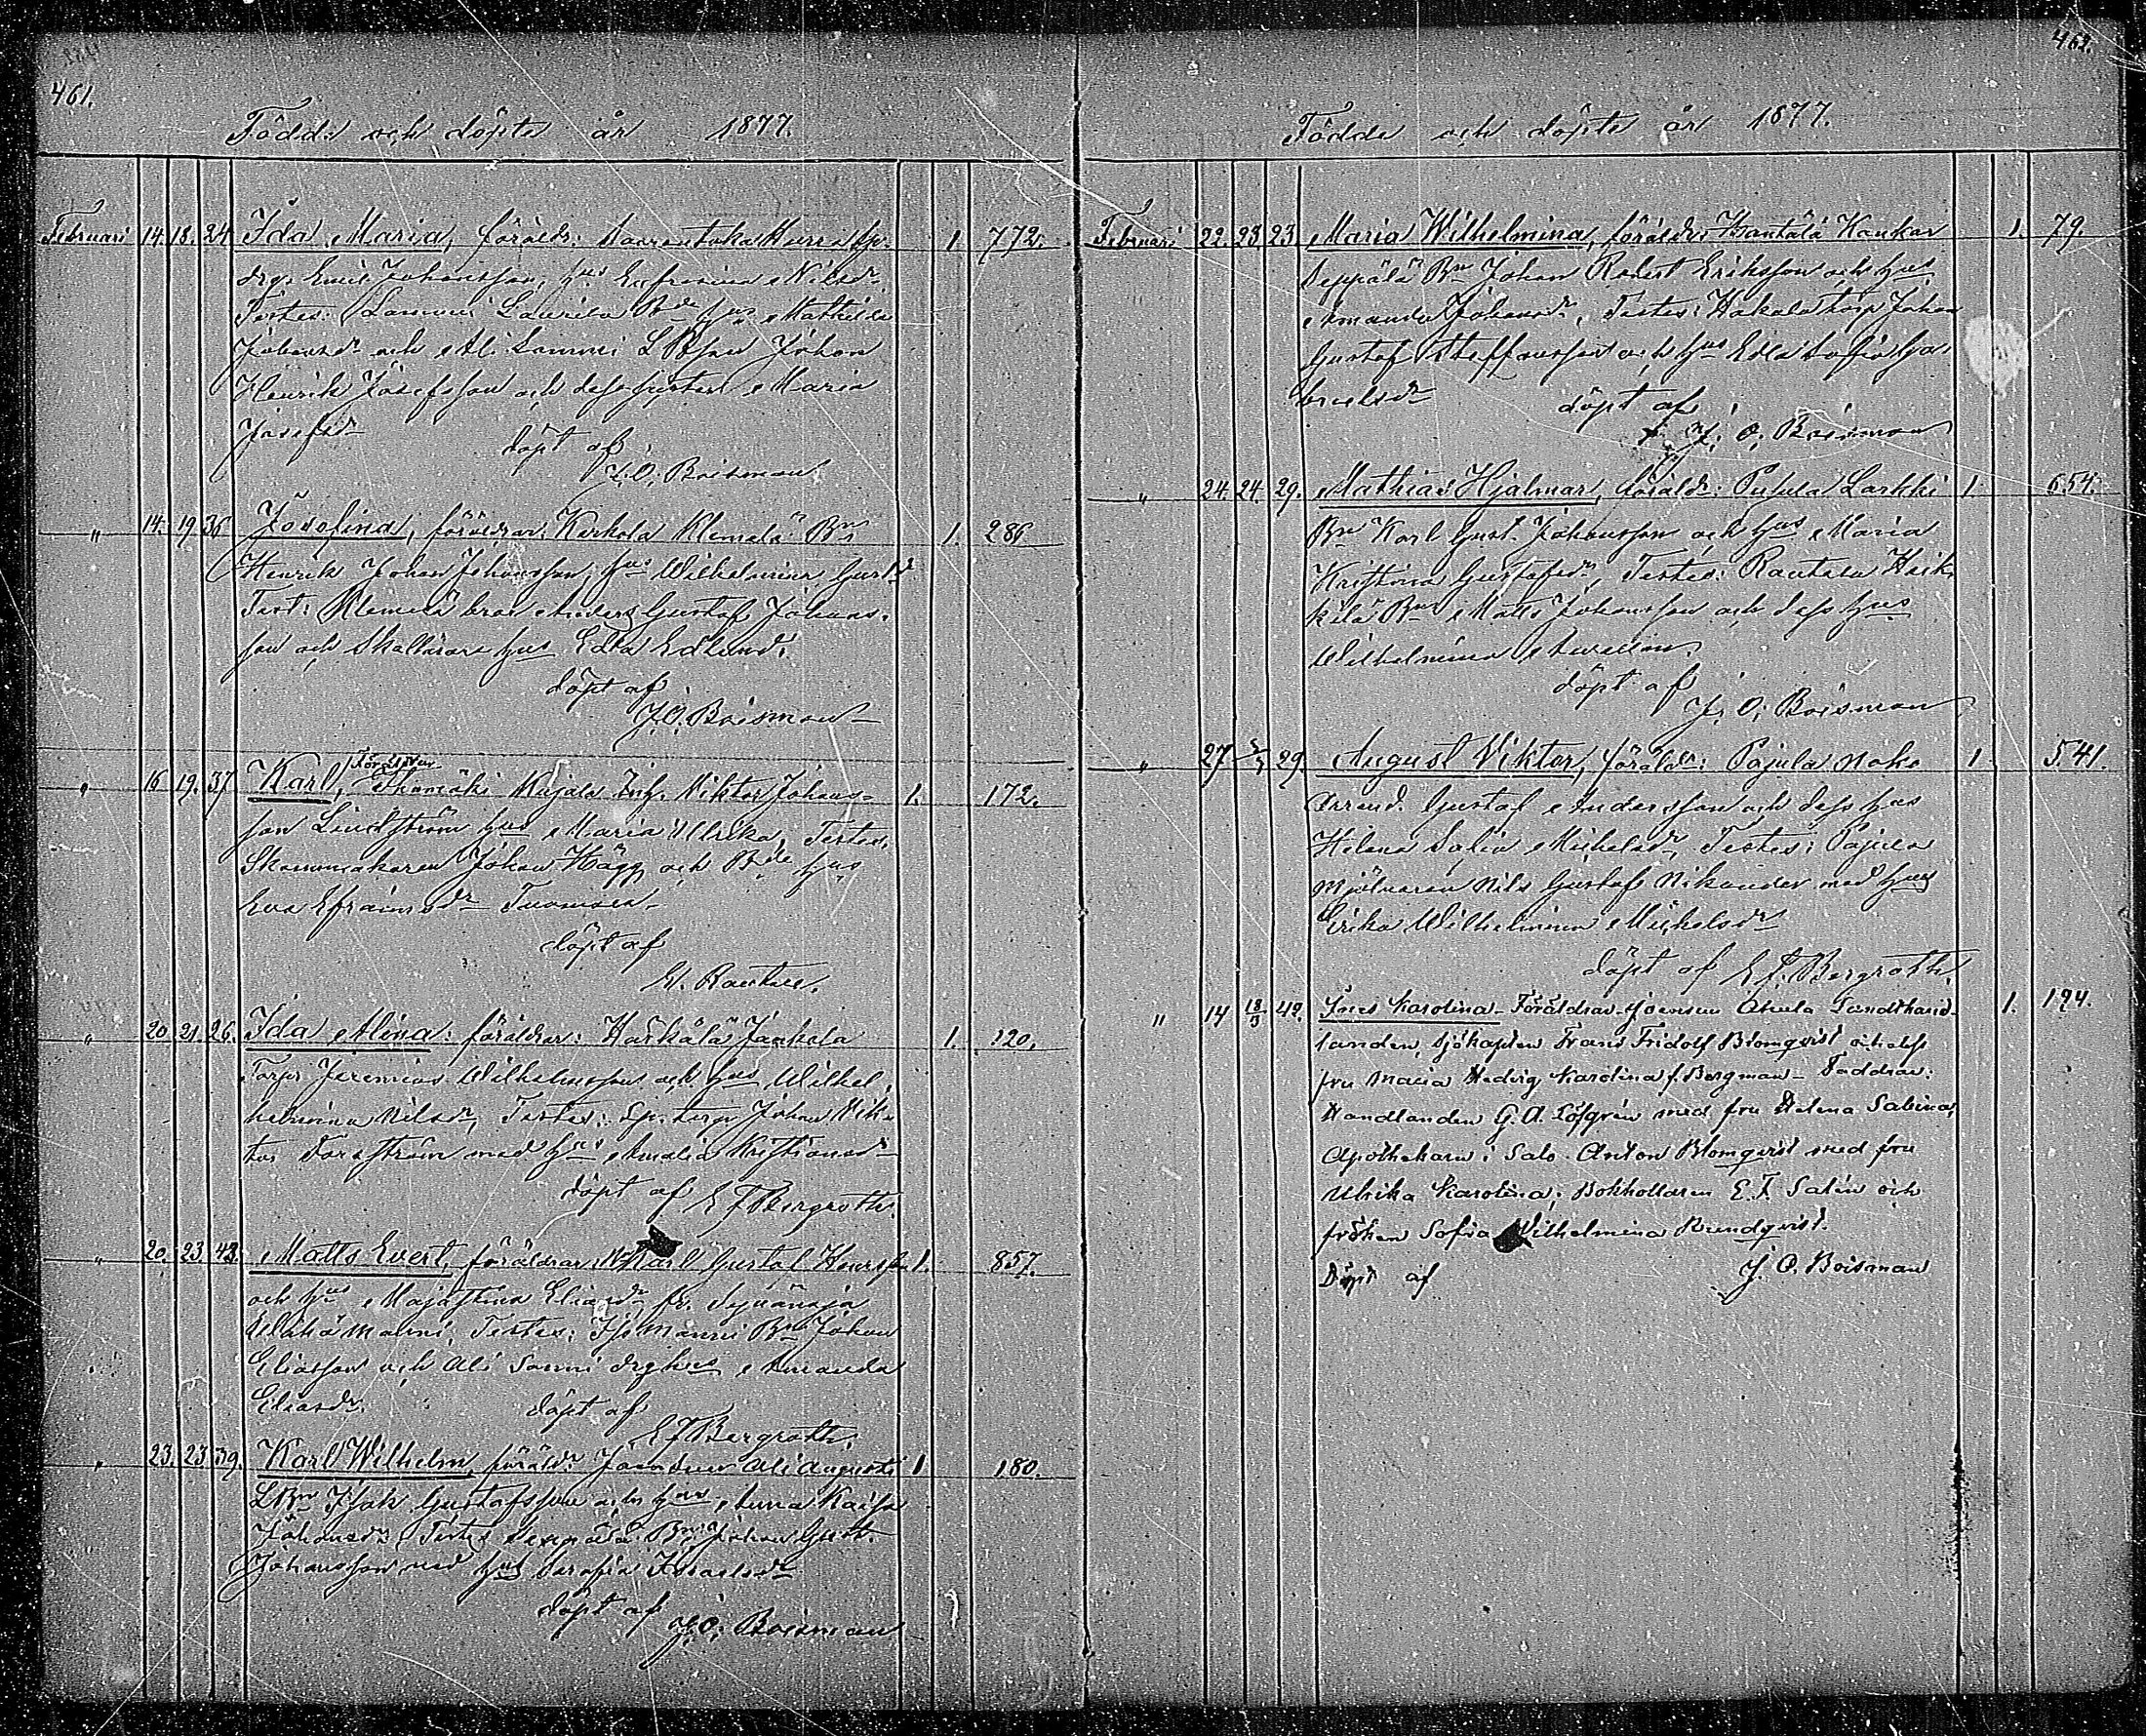 461.
Födde och döpte år 1877.
Februari 14. 18. 24 Ida Maria, föräldr: 1. 772.
drg. Emil Johansson, hus Eufrosina Nilsdr
Testes: Lammi Laurila Bde hus Mathilda
Johansdr och Ali Lammi LBson Johan
Henrik Josefsson och dess syster Maria
Josefsdr
döpt af
J. O. Boisman
" 14. 19. 36 Josefina, föräldrar: Kerkola Klemelä Bn 1. 286
Henrik Johan Johansson, hus Wilhelmina Gustd
Test: Klemelä bron Anders Gustaf Johans-
son och Skallärare hus Edla Edlund.
döpt af
J. O. Boisman
" 16 19. 37 Karl, Föräldrar Kujala Inh. Viktor Johans- 1. 172.
son Lindström hus Maria Ullrika, Testes,
Skommakaren Johan Hägg och Bde hus
Eva Efraimsdr Tuomola
döpt af
" 20 21. 26. Ida Alina: föräldrar: Härkälä Jaakola 1. 120.
Torpr Jeremias Wilhelmsson och hus Wilhel-
helmina Nilsdr, Testes: Sp. torpr Johan Vik-
tor Forsström med hus Amalia Kristiansdr
döpt af E F Bergroth.
" 20. 23. 43. Matts Evert, föräldrar Karl Gustaf Henrsson 1. 857.
och hus Maja Stina Eliasdr fr.
Manni, Testes: Manni Bn Johan
Eliasson och Ali Sarmi drghus Amanda
Eliasdr. döpt af
E F Bergroth.
" 23. 23 39. Karl Wilhelm, föräldr Joensuu Ali Augusti 1 180.
LBn Isak Gustafsson och hus Anna Kaisa
Johansdr, Testes Seppälä Bn Johan Gust.
Johansson med hus Serafia Israelsdr
döpt af
J. O. Boisman
462.
Födde och döpte år 1877.
Februari 22. 23. 23. Maria Wilhelmina, föräldr: Hantälä Kaukar 1. 79.
Seppälä Bn Johan Robert Eriksson och hus
Amanda Johansdr, Testes: Hakala torp Johan
Gustaf Steffansson och hus Edla Sofia Ga-
brielsdr döpt af
J. O. Boisman
" 24. 24. 29. Mathias Hjalmar, föräldr: Pusula Larkki 1. 654.
Bn Karl Gust. Johansson och hus Maria
Kristina Gustafsdr, Testes: Rautela Heik-
kilä Bn Matts Johansson och dess hus
Wilhelmina
döpt af
J. O. Boisman
" 27 2/3 29. August Viktor, föräldr: Pajula Noko 1 541.
Arrend. Gustaf Andersson och dess hus
Helena Sofia Michelsdr, Testes: Pajula
Mjölnaren Nils Gustaf Nikander med hus
Erika Wilhelmina Michelsdr
döpt af E F. Bergroth.
" 14 18/3 42. Ines Karolina Föräldrar Joensuu Åhula Landthand- 1. 194.
landen, Sjökapten Frans Fridolf Blomqvist och dess
fru Maria Hedvig Karolina f. Bergman – Faddrar:
Handlanden G. A. Löfgrén med fru Helena Sabina,
Apothekarn i Salo Anton Blomqvist med fru
Ulrika Karolina; Bokhollaren E. F. Salin och
fröken Sofia Wilhelmina Rundqvist.
Döpt af J. O. Boisman